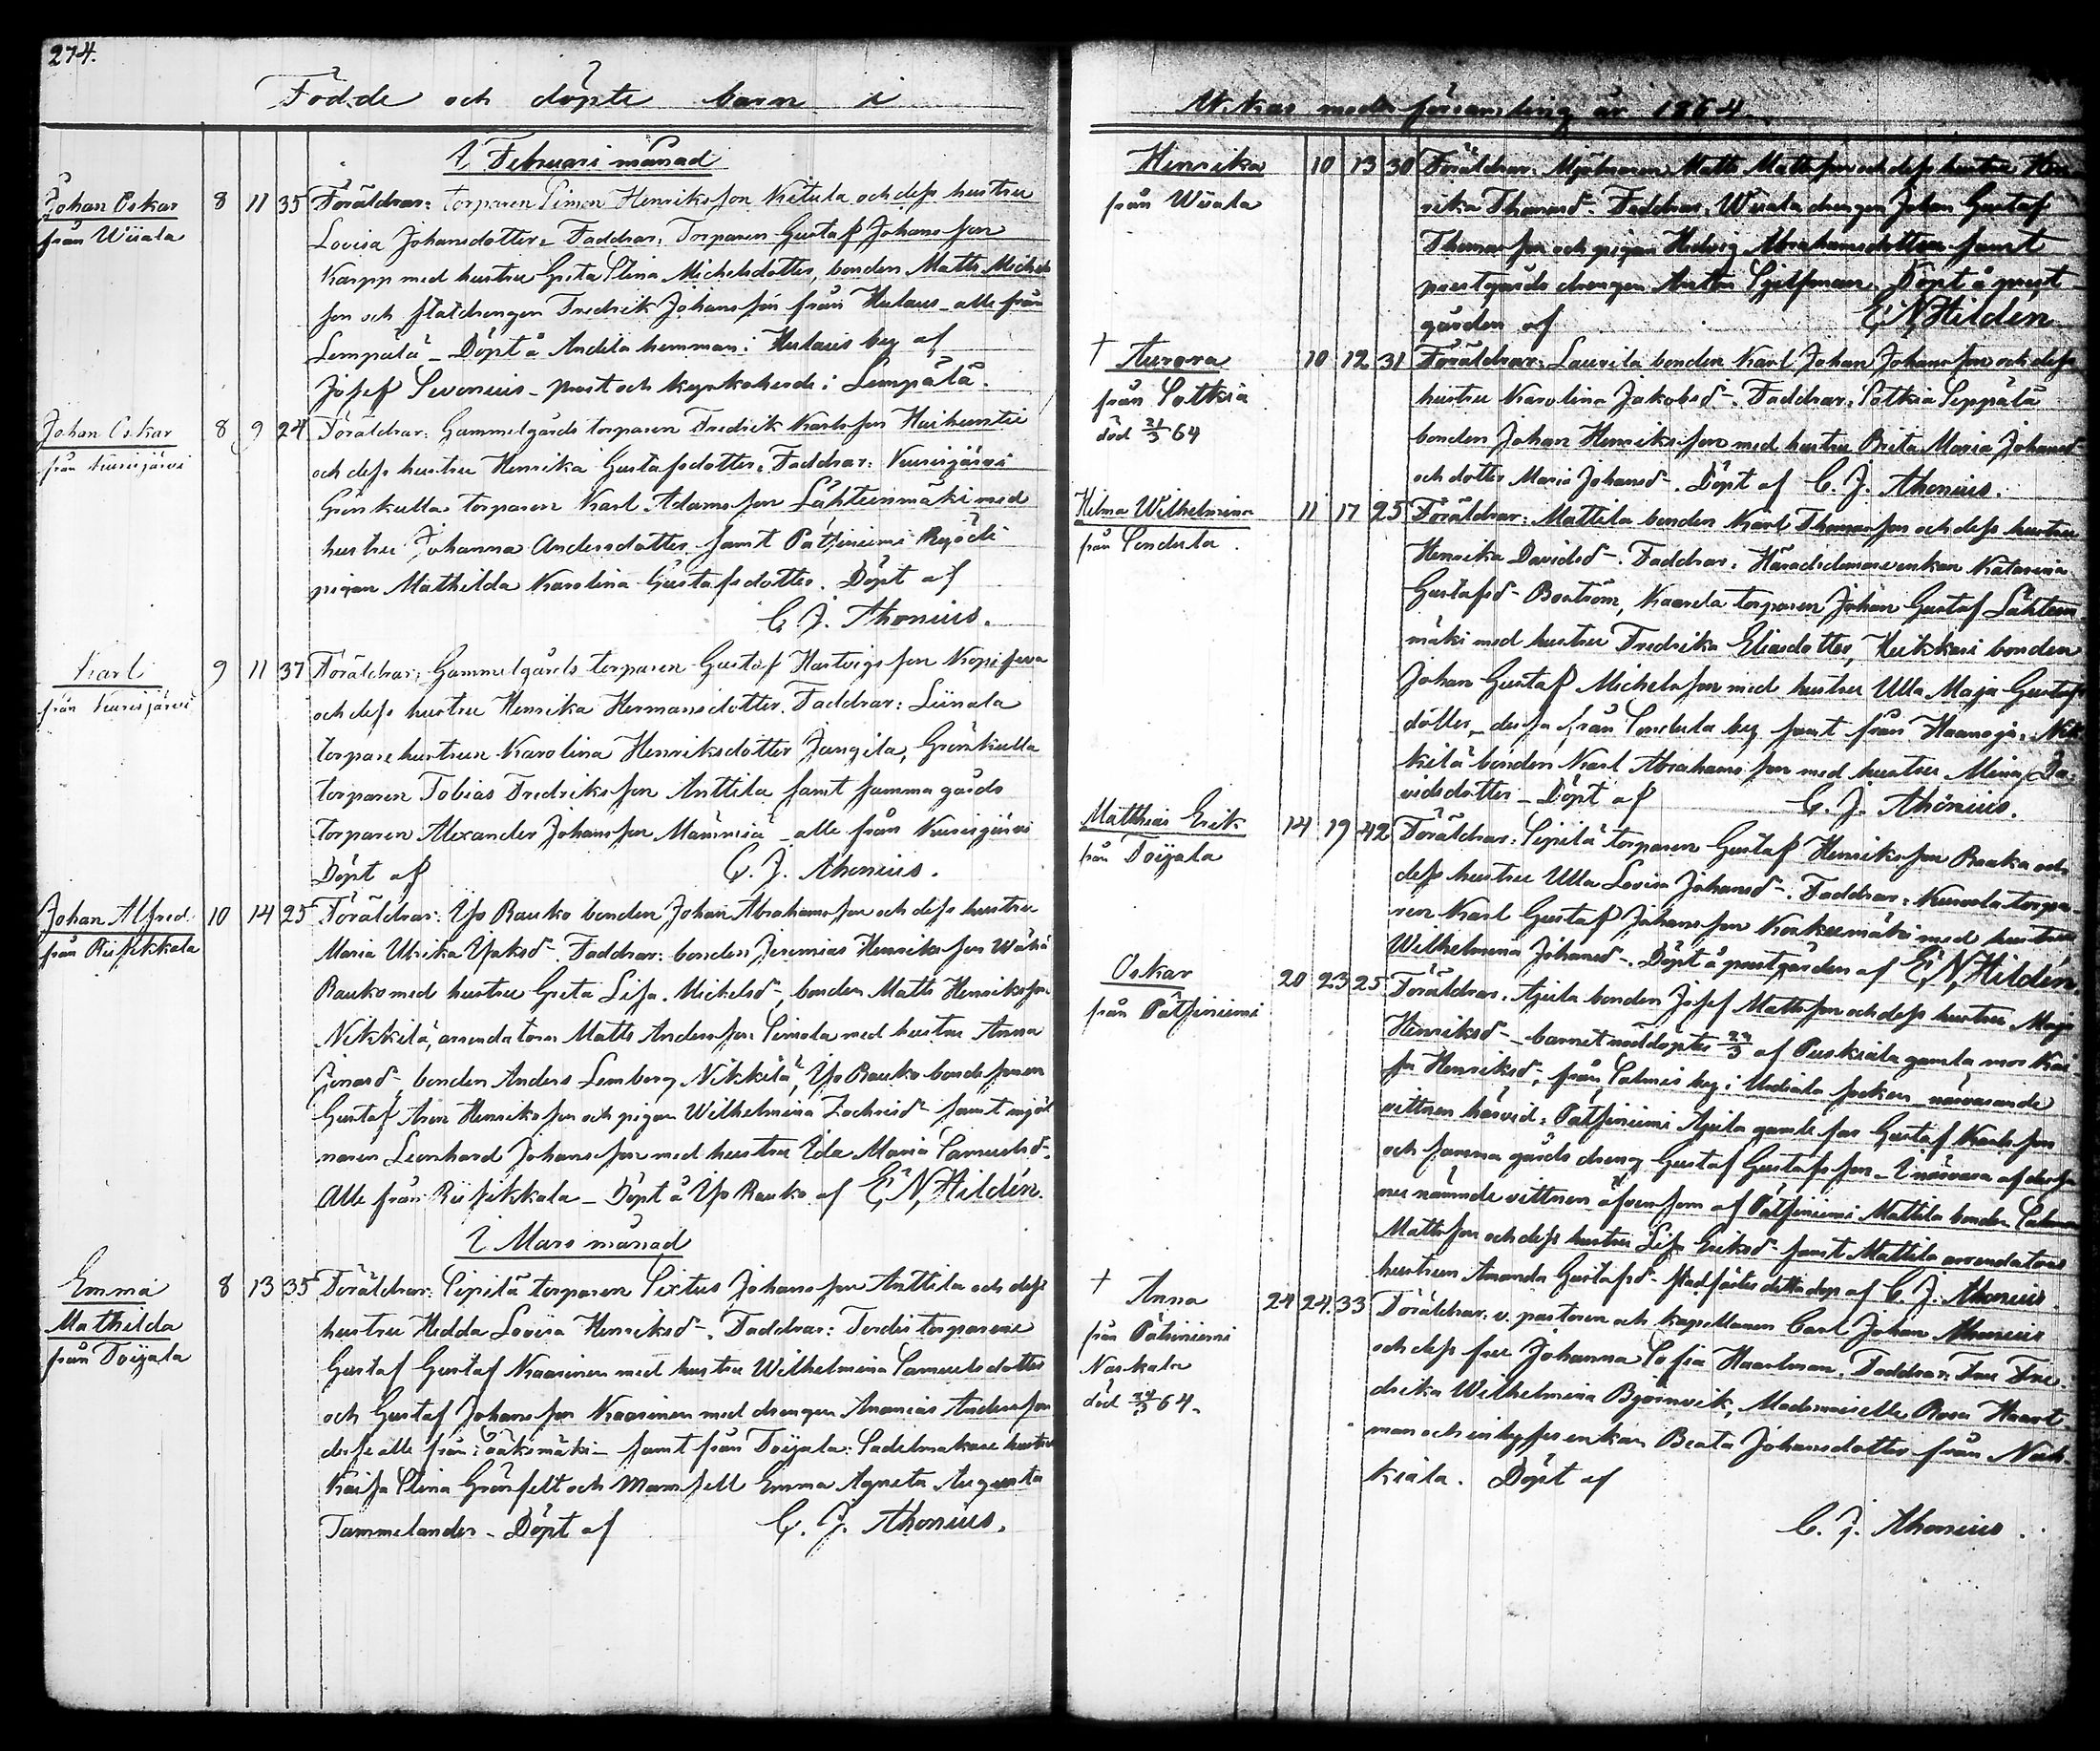 274.
Födde och döpte barn i
I Februari månad
Johan Oskar 8 11 35 Föräldrar: torparen Simon Henriksson Kitula och dess hustru
från Wiiala
Lovisa Johansdotter. Faddrar: Torparen Gustaf Johansson
Karpp med hustru Greta Stina Michelsdotter, bonden Matts Michels
son och statdrengen Fredrik Johansson från Hulaus alla från
Lempälä – Döpt å Andila hemman i Hulaus by af
Josef Severius – prost och kyrkoherde i Lempälä.
Johan Oskar 8 9 24 Föräldrar: Gammelgårds torparen Fredrik Karlsson Haihuntie
från Kurisjärvi
och dess hustru Henrika Gustafsdotter. Faddrar: Kurisjärvi
Grönkulla torparen Karl Adamsson Lähteenmäki med
hustru Johanna Andersdotter samt Pätsiniemi
pigan Mathilda Karolina Gustafsdotter. Döpt af
C. J. Ahonius.
Karl 9 11 37 Föräldrar: Gammelgårds torparen Gustaf Hartvigsson
från Kurisjärvi
och dess hustru Henrika Hermansdotter. Faddrar: Liinala
torpare hustrun Karolina Henriksdotter Jungila, Grönkulla
torparen Tobias Fredriksson Anttila samt samma gårds
torparen Alexander Johansson Männisiä – alle från Kurisjärvi
Döpt af C. J. Ahonius.
Johan Alfred 10 14 25 Föräldrar: Yso Rauko bonden Johan Abrahamsson och dess hustru
från Riisikkala
Maria Ulrika Isaksd–. Faddrar: bonden Jeremias Henriksson Wähä
Rauko med hustru Greta Lisa Mickelsd–, bonden Matts Henriksson
Nikkilä, arrendatorn Matts Andersson Simola med hustru Anna
bonden Anders Lemberg Nikkilä, Yso Rauko bondesonen
Gustaf Aron Henriksson och pigan Wilhelmina Zachrisd– samt mjöl
naren Leonhard Johansson med hustru Ida Maria Samuelsd–.
Alle från Riisikkala – Döpt å Yso Rauko af E. N. Hildén.
I Mars månad
Emma 8 13 35 Föräldrar: Sipilä torparen Sixtus Johansson Anttila och dess
Mathilda
från Toijala
hustru Hedda Lovisa Henriksd–. Faddrar: torparene
Gustaf Gustaf Kaarinen med hustru Wilhelmina Samuelsdotter
och Gustaf Johansson Kaarinen med drengen Ananias Andersson
desse alle från Sääksmäki – samt från Toijala: Sadelmakare hustru
Kaisa Stina Grönfelt och Mamsell Emma Agneta Augusta
Tammelander – Döpt af C. J. Ahonius.
Akkas moder församling år 1864.
Henrika 10 13 30 Föräldrar: Mjölnaren Matts Mattsson och dess hustru Hen
från Wiiala
rika Thomasd–. Faddrar: Wiiala drengen Johan Gustaf
Thomasson och pigan Hedvig Abrahamsdotter samt
prestgårds drengen Anton Döpt å prest
gården af E. N. Hildén
† Aurora 10 12 31 Föräldrar: Laurila bonden Karl Johan Johansson och dess
från Sotkia
död 21/3 64
hustru Karolina Jakobsd–. Faddrar: Sotkia Seppälä
bonden Johan Henriksson med hustru Brita Maria Johansd–
och dotter Maria Johansd–. Döpt af C. J. Ahonius.
Hilma Wilhelmina 11 17 25 Föräldrar: Mattila bonden Karl Thomasson och dess hustru
från Sondula.
Henrika Davidsd–. Faddrar: Häradsdomare enkan Katarina
Gustafsd– Boström, Kaarela torparen Johan Gustaf Lähteen
mäki med hustru Fredrika Eliasdotter, Heikkari bonden
Johan Gustaf Michelsson med hustru Ulla Maja Gustafs
dotter – dessa från Sondula by samt från Haanoja: Nik
kilä bonden Karl Abrahamsson med hustru Mina Da-
vidsdotter – Döpt af C. J. Ahonius.
Matthias Erik 14 19 42 Föräldrar: Sipilä torparen Gustaf Henriksson Raaka och
från Toijala
dess hustru Ulla Lovisa Johansd–. Faddrar: torpa-
ren Karl Gustaf Johansson Korkeemäki med hustru
Wilhelmina Johansd–. Döpt å prestgården af E. N. Hildén.
Oskar 20 23 25 Föräldrar: Ajula bonden Josef Mattsson och dess hustru Maja
från Pätsiniemi
Henriksd– – barnet nöddöptes af Puskiala gamla mor Kai-
sa Henriksd–, från Salmis by i Urdiala socken – närvarande
vittnen härvid: Pätsiniemi Ajula gamle far Gustaf Karlsson
och samma gårds dreng Gustaf Gustafsson – I närvaro af dessa
nu nämnde vittnen äfvensom af Pätsiniemi Mattila bonden
Mattsson och dess hustru Lisa Eriksd– samt Mattila arrendators
hustrun Amanda Gustafsd– stadfästes detta dop af C. J. Ahonius.
† Anna 24 24 33 Föräldrar: v. pastoren och kapellanen Carl Johan Ahonius
från Pätsiniemi
Naskala
död 24/3 64.
och dess fru Johanna Sofia Haartman. Faddrar: Fru Fre-
drika Wilhelmina Björnvik, Mademoiselle Rosa Haart
man och inhyses enkan Beata Johansdotter från Nah-
kiala. Döpt af
C. J. Ahonius.